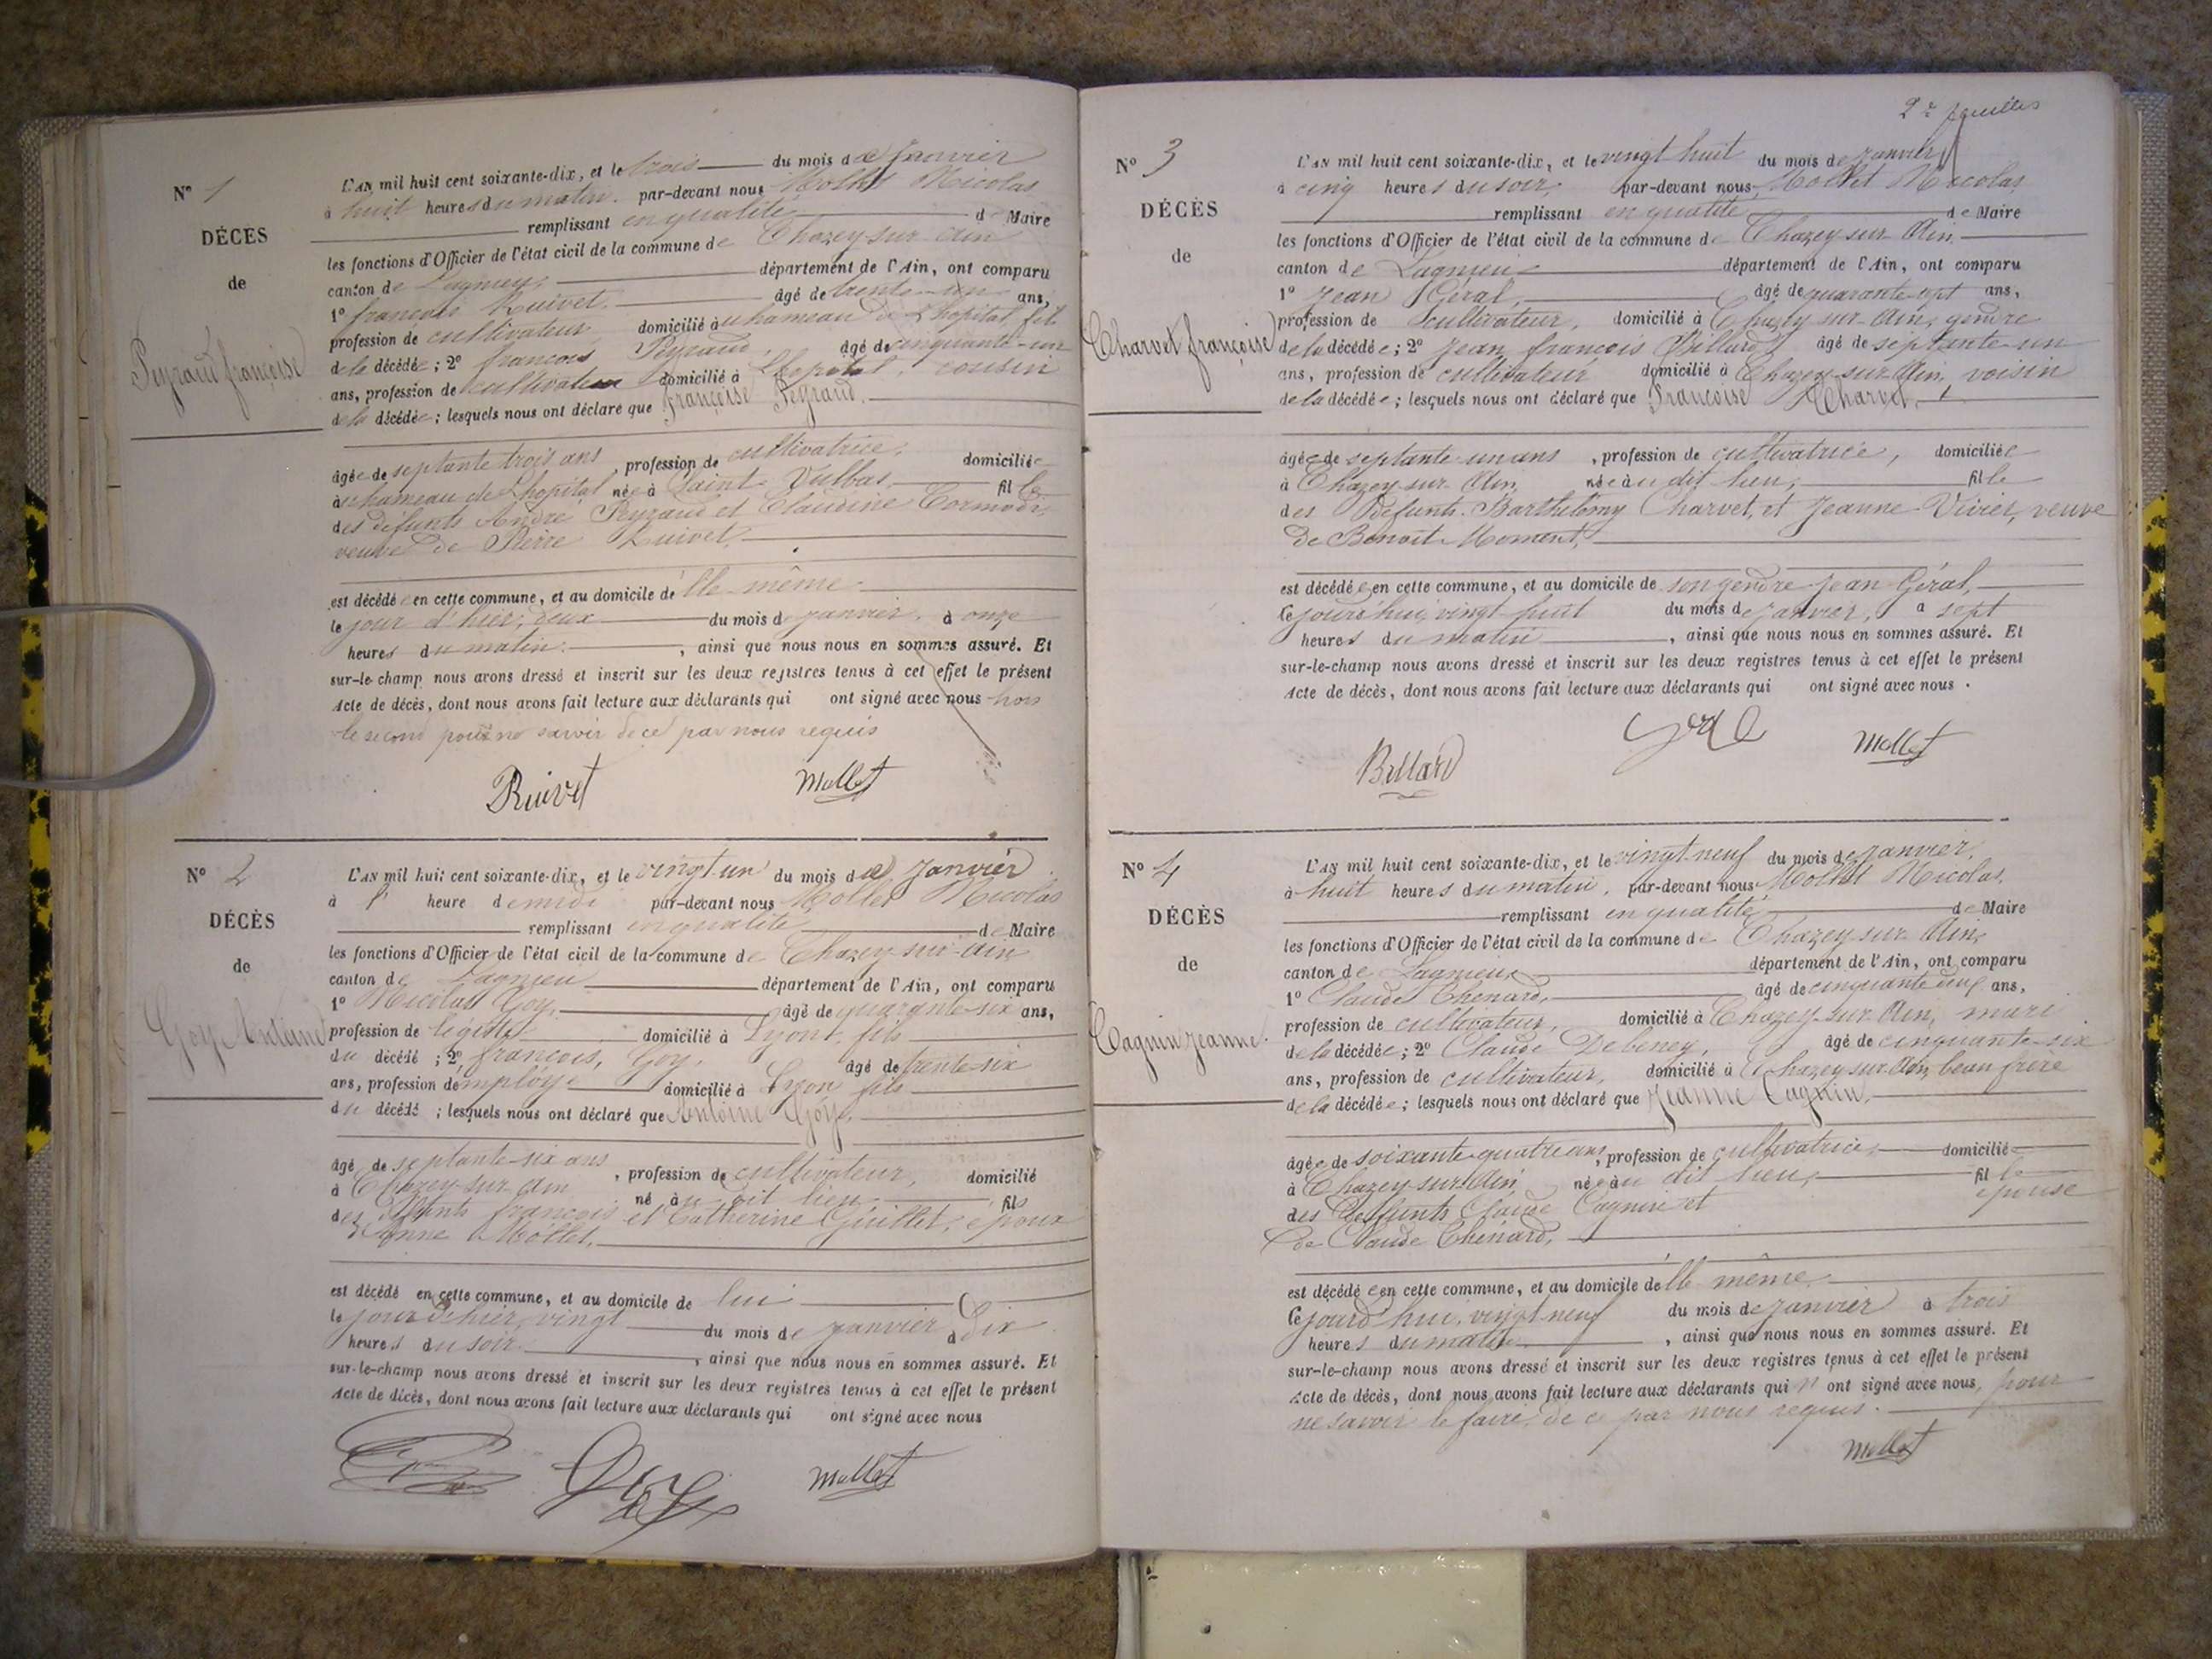 N° 1
DÉCÈS
de
Peyraud françoise
L'AN mil huit cent soixante-dix, et le trois du mois de Janvier
à huit heures du matin. par-devant nous Mollet Nicolas
remplissant en qualité de Maire
les fonctions d'Officier de l'état civil de la commune de Chazey-sur-Ain
canton de Lagnieu, département de l'Ain, ont comparu
1° françois Ruivet. âgé de trente-un ans,
profession de cultivateur domicilié au hameau de Lhopital, fils
de la décédée; 2° françois Peyraud, âgé de cinquante-un
ans, profession de cultivateur domicilié à Lhopital, cousin
de la décédée; lesquels nous ont déclaré que françoise Peyraud.
âgée de septante trois ans, profession de cultivatrice, domiciliée
au hameau de Lhopital née à Saint-Vulbas fille
des défunts André Peyraud et Claudine
veuve de Pierre Ruivet,
est décédée en cette commune, et au domicile de elle même
le jour d'hier, deux du mois de janvier, à onze
heures du matin. , ainsi que nous nous en sommes assuré. Et
sur-le-champ nous avons dressé et inscrit sur les deux registres tenus à cet effet le présent
Acte de décès, dont nous avons fait lecture aux déclarants qui ont signé avec nous hors
le second pour ne savoir de ce par nous requis
Ruivet Mollet
N° 2
DÉCÈS
de
Goy Antoine
L'AN mil huit cent soixante-dix, et le vingt-un du mois de Janvier
à 1 heure de midi par-devant nous Mollet Nicolas
remplissant en qualité de Maire
les fonctions d'Officier de l'état civil de la commune de Chazey-sur-Ain
canton de Lagnieu département de l'Ain, ont comparu
1° Nicolas Goy, âgé de quarante-six ans,
profession de légiste domicilié à Lyon, fils
du décédé; 2° françois, Goy, âgé de trente-six
ans, profession d'employé domicilié à Lyon fils
du décédé; lesquels nous ont déclaré que Antoine Goy,
âgé de septante-six ans, profession de cultivateur, domicilié
à Chazey-sur-Ain né au dit lieu fils
des défunts françois et Catherine Guillet, époux
d'Anne Mollet,
est décédé en cette commune, et au domicile de lui
le jour de hier, vingt du mois de janvier à Dix
heures du soir. , ainsi que nous nous en sommes assuré. Et
sur-le-champ nous avons dressé et inscrit sur les deux registres tenus à cet effet le présent
Acte de décès, dont nous avons fait lecture aux déclarants qui ont signé avec nous
Goy Mollet
2e feuillet
N° 3
DÉCÈS
de
Charvet françoise
L'AN mil huit cent soixante-dix, et le vingt huit du mois de janvier
à cinq heures du soir, par-devant nous Mollet Nicolas
remplissant en qualité de Maire
les fonctions d'Officier de l'état civil de la commune de Chazey-sur-Ain
canton de Lagnieu département de l'Ain, ont comparu
1° Jean Géral, âgé de quarante-sept ans,
profession de cultivateur, domicilié à Chazey-sur-Ain, gendre
de la décédée; 2° Jean françois Billard âgé de septante-un
ans, profession de cultivateur domicilié à Chazey-sur-Ain, voisin
de la décédée; lesquels nous ont déclaré que Françoise Charvet,
âgée de septante-un ans, profession de cultivatrice, domiciliée
à Chazey-sur-Ain, née au dit lieu, fille
des Défunts Barthélemy Charvet, et Jeanne Vivier, veuve
de Benoît Moment,
est décédée en cette commune, et au domicile de son gendre Jean Géral,
Ce jourd'hui, vingt huit du mois de janvier, à sept
heures du matin , ainsi que nous nous en sommes assuré. Et
sur-le-champ nous avons dressé et inscrit sur les deux registres tenus à cet effet le présent
Acte de décès, dont nous avons fait lecture aux déclarants qui ont signé avec nous.
Billard Géral Mollet
N° 4
DÉCÈS
de
Cagnin Jeanne
L'AN mil huit cent soixante-dix, et le vingt-neuf du mois de janvier,
à huit heures du matin, par-devant nous Mollet Nicolas
remplissant en qualité de Maire
les fonctions d'Officier de l'état civil de la commune de Chazey-sur-Ain,
canton de Lagnieu département de l'Ain, ont comparu
1° Claude Chenard, âgé de cinquante-neuf ans,
profession de cultivateur, domicilié à Chazey-sur-Ain, mari
de la décédée; 2° Claude Debeney, âgé de cinquante-six
ans, profession de cultivateur, domicilié à Chazey-sur-Ain, beau frère
de la décédée; lesquels nous ont déclaré que Jeanne Cagnin,
âgée de soixante-quatre ans, profession de cultivatrice, domicilié
à Chazey-sur-Ain née au dit lieu, fille
des défunts Claude Cagnin et épouse
de Claude Chénard,
est décédée en cette commune, et au domicile de elle même
Ce jourd'hui, vingt-neuf du mois de janvier à trois
heures du matin , ainsi que nous nous en sommes assuré. Et
sur-le-champ nous avons dressé et inscrit sur les deux registres tenus à cet effet le présent
Acte de décès, dont nous avons fait lecture aux déclarants qui n'ont signé avec nous, pour
ne savoir le faire, de ce par nous requis.
Mollet